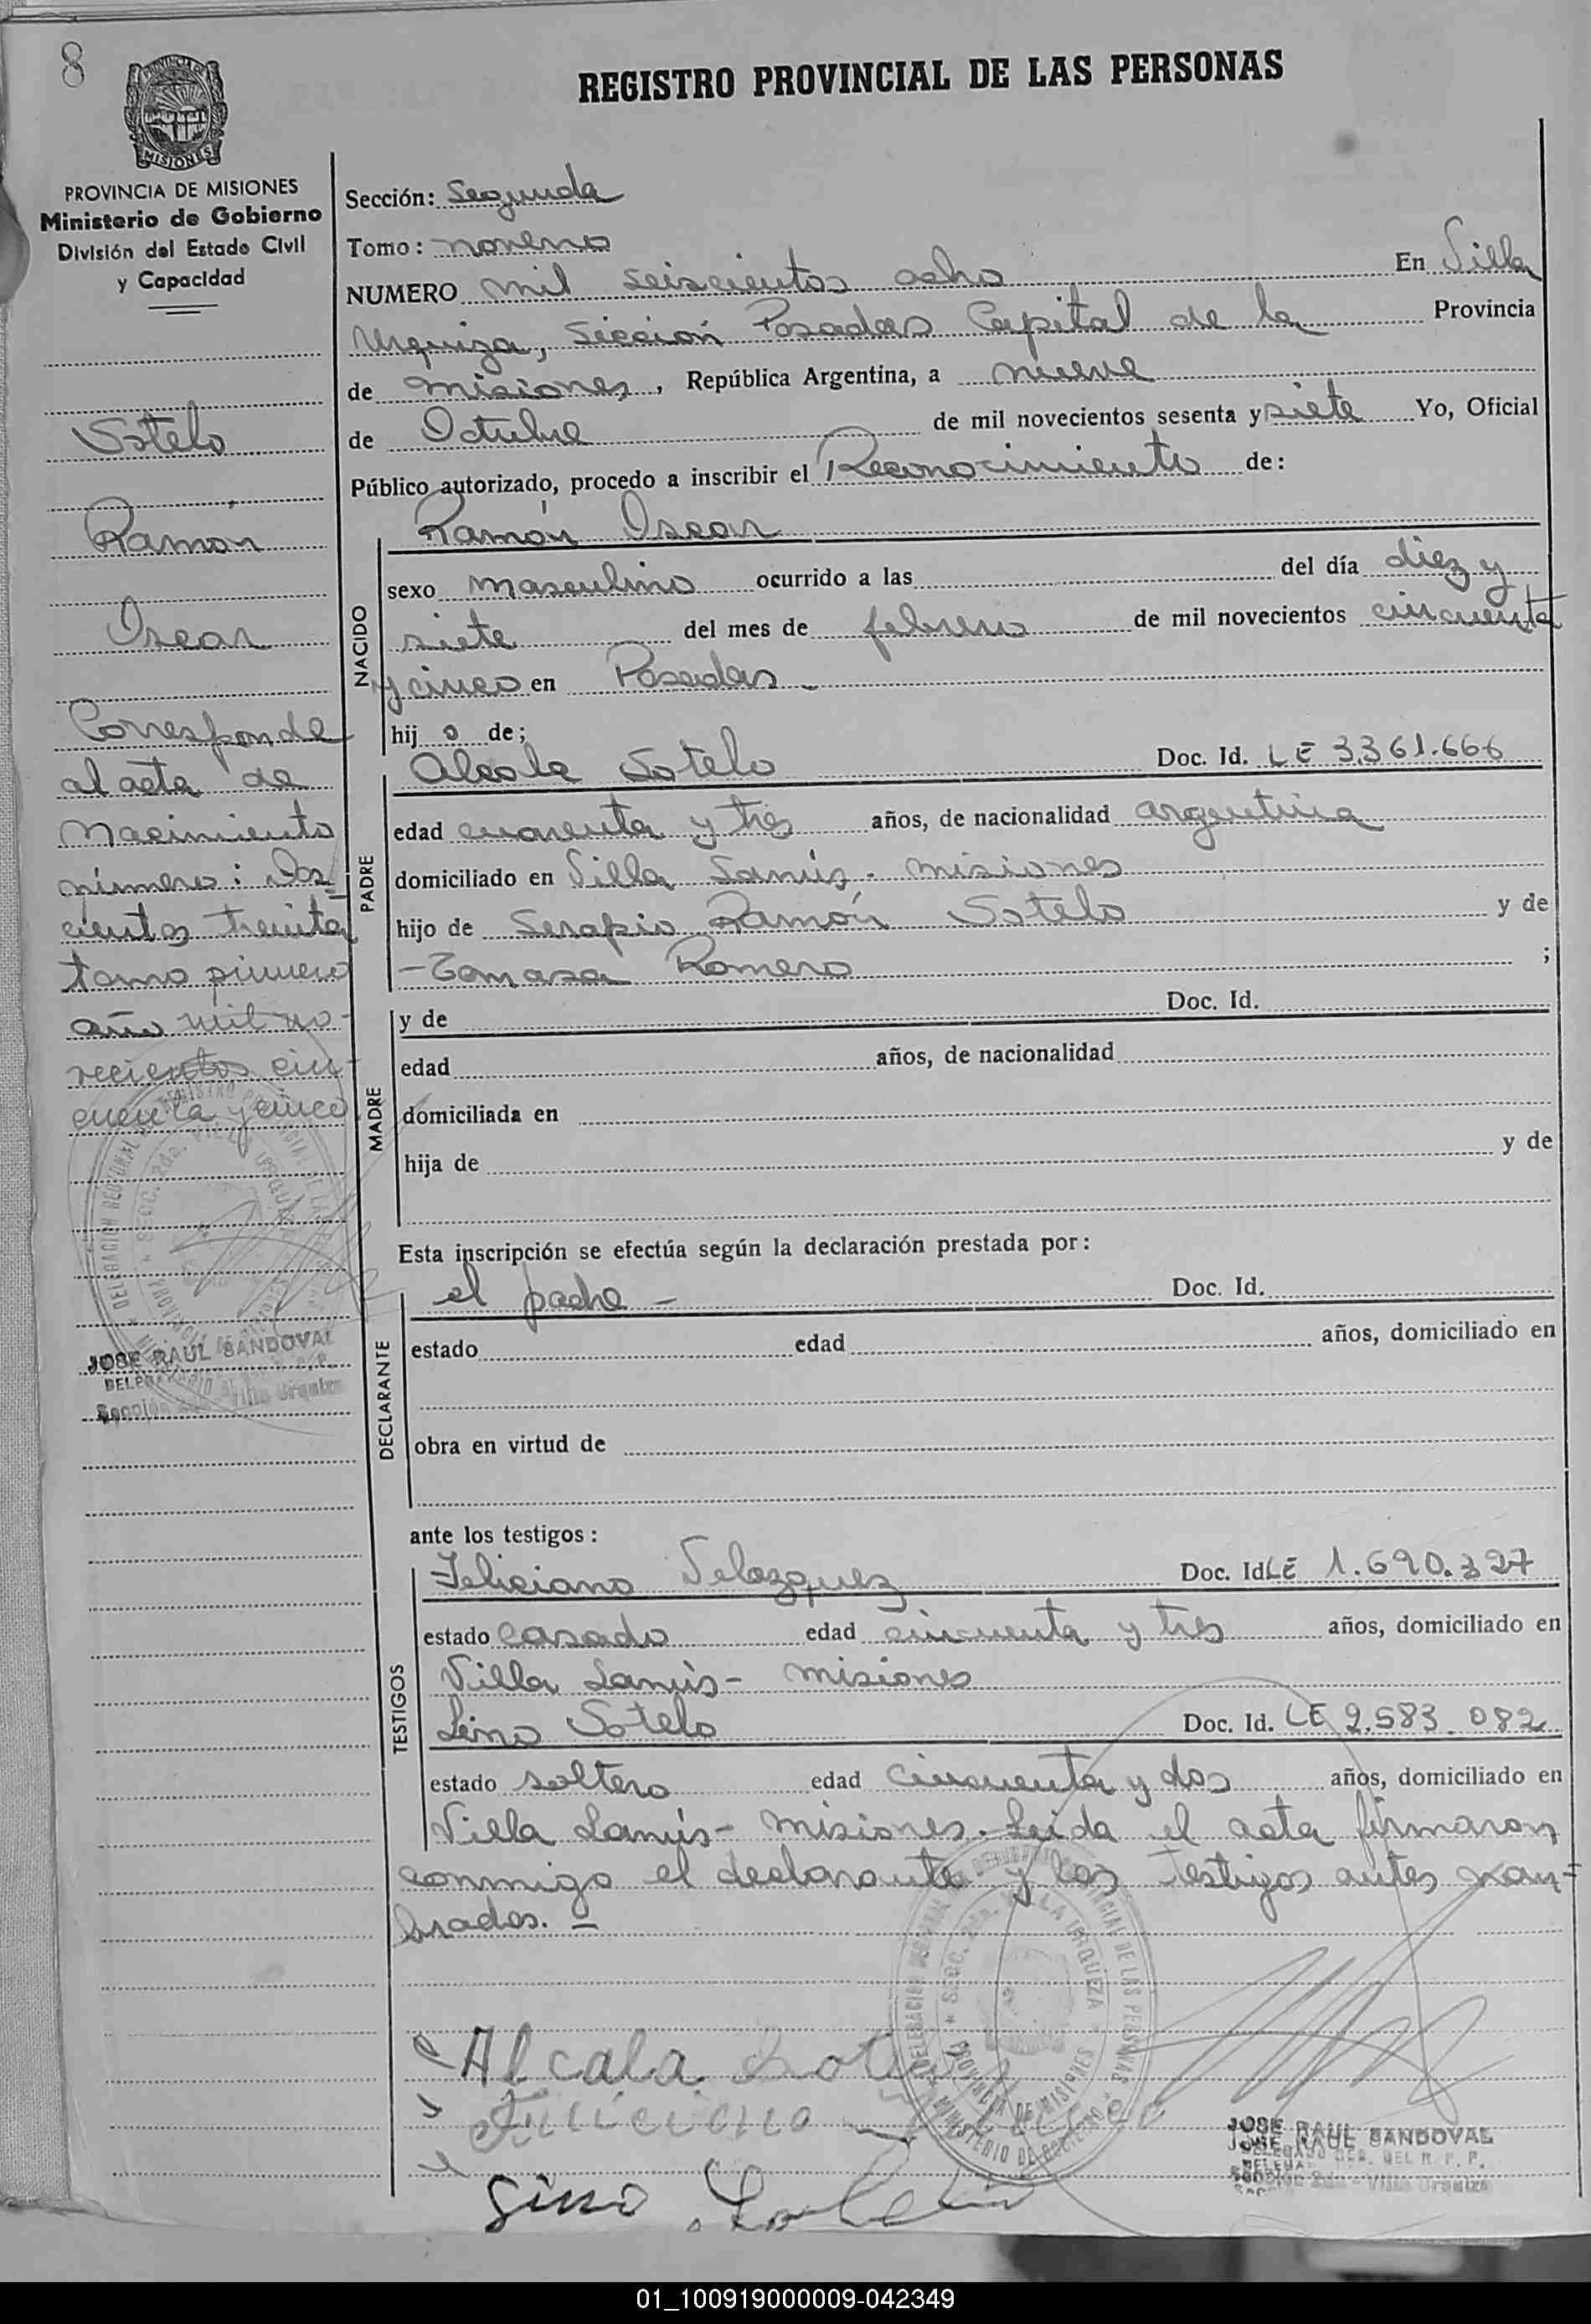 8
PROVINCIA DE MISIONES
Ministerio de Gobierno
División del Estado Civil
y Capacidad
Sotelo
Ramón
Oscar
Corresponde
al acta de
Nacimiento
número: Dos-
cientos treinta
tomo primero
año mil no-
vecientos cin-
cuenta y cinco
JOSE RAUL SANDOVAL
REGISTRO PROVINCIAL DE LAS PERSONAS
Sección: Segunda
Tomo: noveno
NUMERO mil seiscientos ocho En Villa
Urquiza, Sección Posadas Capital de la Provincia
de misiones, República Argentina, a nueve
de Octubre de mil novecientos sesenta y siete Yo, Oficial
Público autorizado, procedo a inscribir el Reconocimiento de:
NACIDO
Ramón Oscar
sexo masculino ocurrido a las del día diez y
siete del mes de febrero de mil novecientos cincuenta
y cinco en Posadas -
hij o de;
PADRE
Alcala Sotelo Doc. Id. LE 3.361.666
edad cuarenta y tres años, de nacionalidad argentina
domiciliado en Villa Lanús - misiones
hijo de Serapio Ramón Sotelo y de
- Tomasa Romero ;
MADRE
y de Doc. Id.
edad años, de nacionalidad
domiciliada en
hija de y de
Esta inscripción se efectúa según la declaración prestada por:
DECLARANTE
el padre - Doc. Id.
estado edad años, domiciliado en
obra en virtud de
ante los testigos:
TESTIGOS
Feliciano Velazquez Doc. Id LE 1.690.327
estado casado edad cincuenta y tres años, domiciliado en
Villa Lanús - misiones
Lino Sotelo Doc. Id. LE 2.583.082
estado soltero edad cincuenta y dos años, domiciliado en
Villa Lanús - misiones. Leida el acta firmaron
conmigo el declarante y los testigos antes nom=
brados. =
Alcala Sotelo
Feliciano
Lino Sotelo
DELEGACION REGIONAL REGISTRO PROVINCIAL DE LAS PERSONAS
SECC. 2da. VILLA URQUIZA
PROVINCIA DE MISIONES
MINISTERIO DE GOBIERNO
JOSE RAUL SANDOVAL
01_100919000009-042349